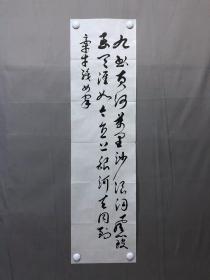 九曲黄河万里沙浪淘风簸
自天涯如今直上银河去同到
牵牛织女家